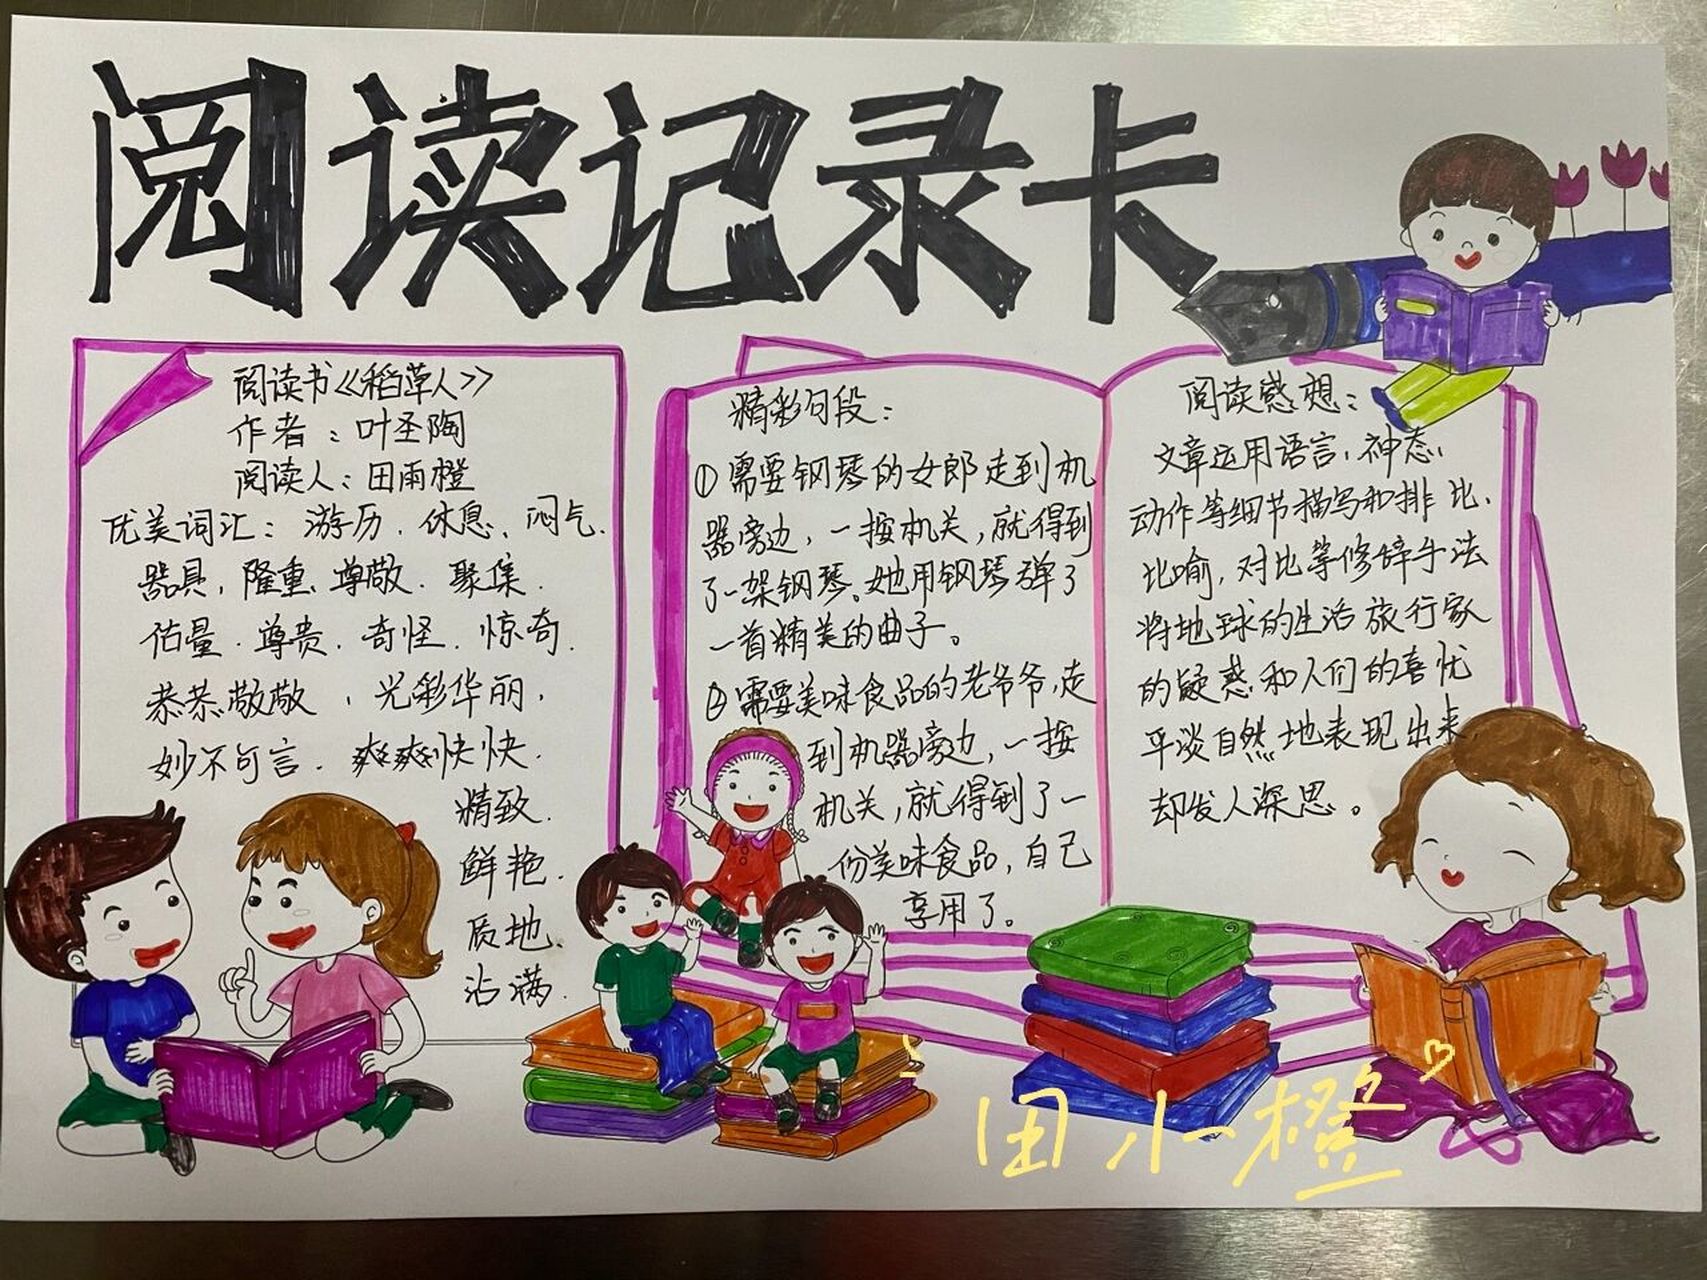 阅读记录卡
阅读书《稻草人》
作者：叶圣陶
阅读人：田雨橙
优美词汇：游历、休息、闷气、
器具，隆重、尊敬、聚集、
估量、尊贵、奇怪、惊奇、
恭恭敬敬、光彩华丽，
妙不可言、爽爽快快、
精致、
鲜艳、
质地、
沾满、
精彩句段：
①需要钢琴的女郎走到机
器旁边，一按机关，就得到
了一架钢琴。她用钢琴弹了
一首精美的曲子。
②需要美味食品的老爷爷，走
到机器旁边，一按
机关，就得到了一
份美味食品，自己
享用了。
阅读感想：
文章运用语言、神态、
动作等细节描写和排比、
比喻，对比等修辞手法
将地球的生活旅行家
的疑惑和人们的喜忧
平淡自然地表现出来
却发人深思。
田小橙